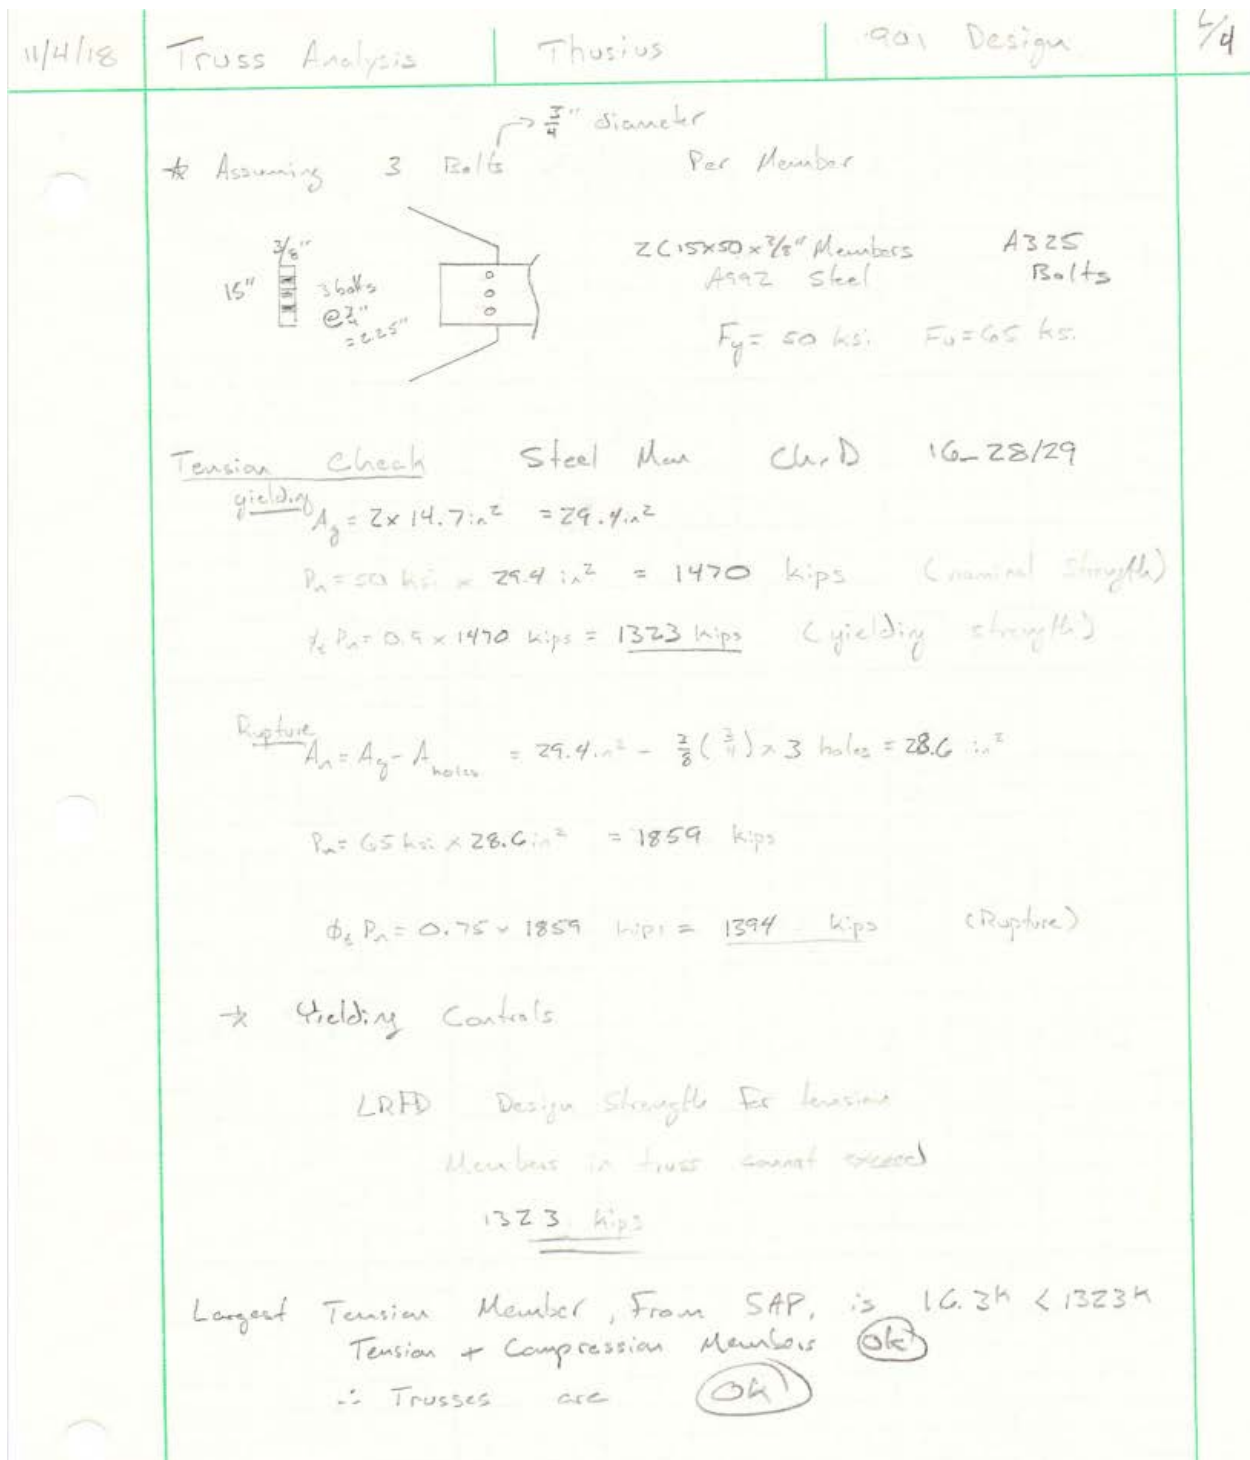 11/4/18 Truss Analysis Thusius 901 Design
3/4" diameter
* Assuming 3 Bolts Per Member
3/8"
15"
3 bolts
@ 3/4"
= 2.25"
2C15x50x3/8" Members A325
A992 Steel Bolts
Fy = 50 ksi Fu = 65 ksi
Tension Check Steel Man Ch. D 16-28/29
yielding
Ag = 2 x 14.7 in² = 29.4 in²
Pn = 50 ksi x 29.4 in² = 1470 kips (nominal strength)
ϕt Pn = 0.9 x 1470 kips = 1323 kips (yielding strength)
Rupture
An = Ag - Aholes = 29.4 in² - 3/8 (3/4) x 3 holes = 28.6 in²
Pn = 65 ksi x 28.6 in² = 1859 kips
ϕt Pn = 0.75 x 1859 kips = 1394 kips (Rupture)
* Yielding Controls
LRFD Design Strength for tension
Members in truss cannot exceed
1323 kips
Largest Tension Member, From SAP, is 16.3k < 1323k
Tension + Compression Members Ok
∴ Trusses are Ok